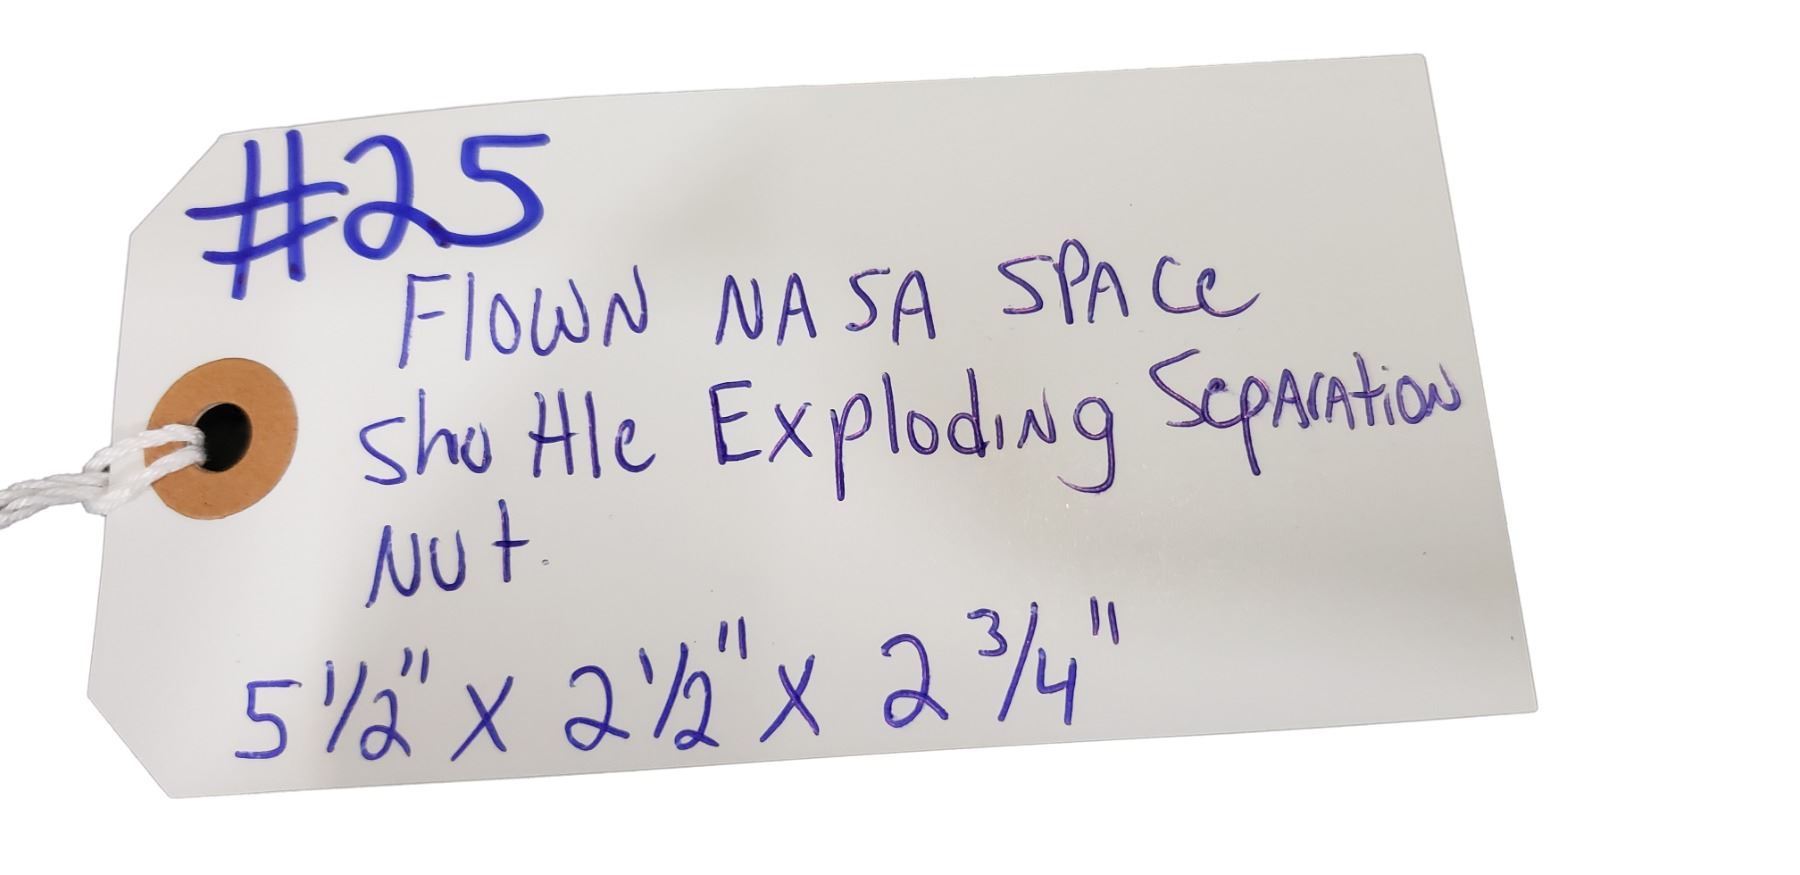 #25
Flown NASA Space
shuttle Exploding Separation
Nut.
5 1/2" x 2 1/2" x 2 3/4"